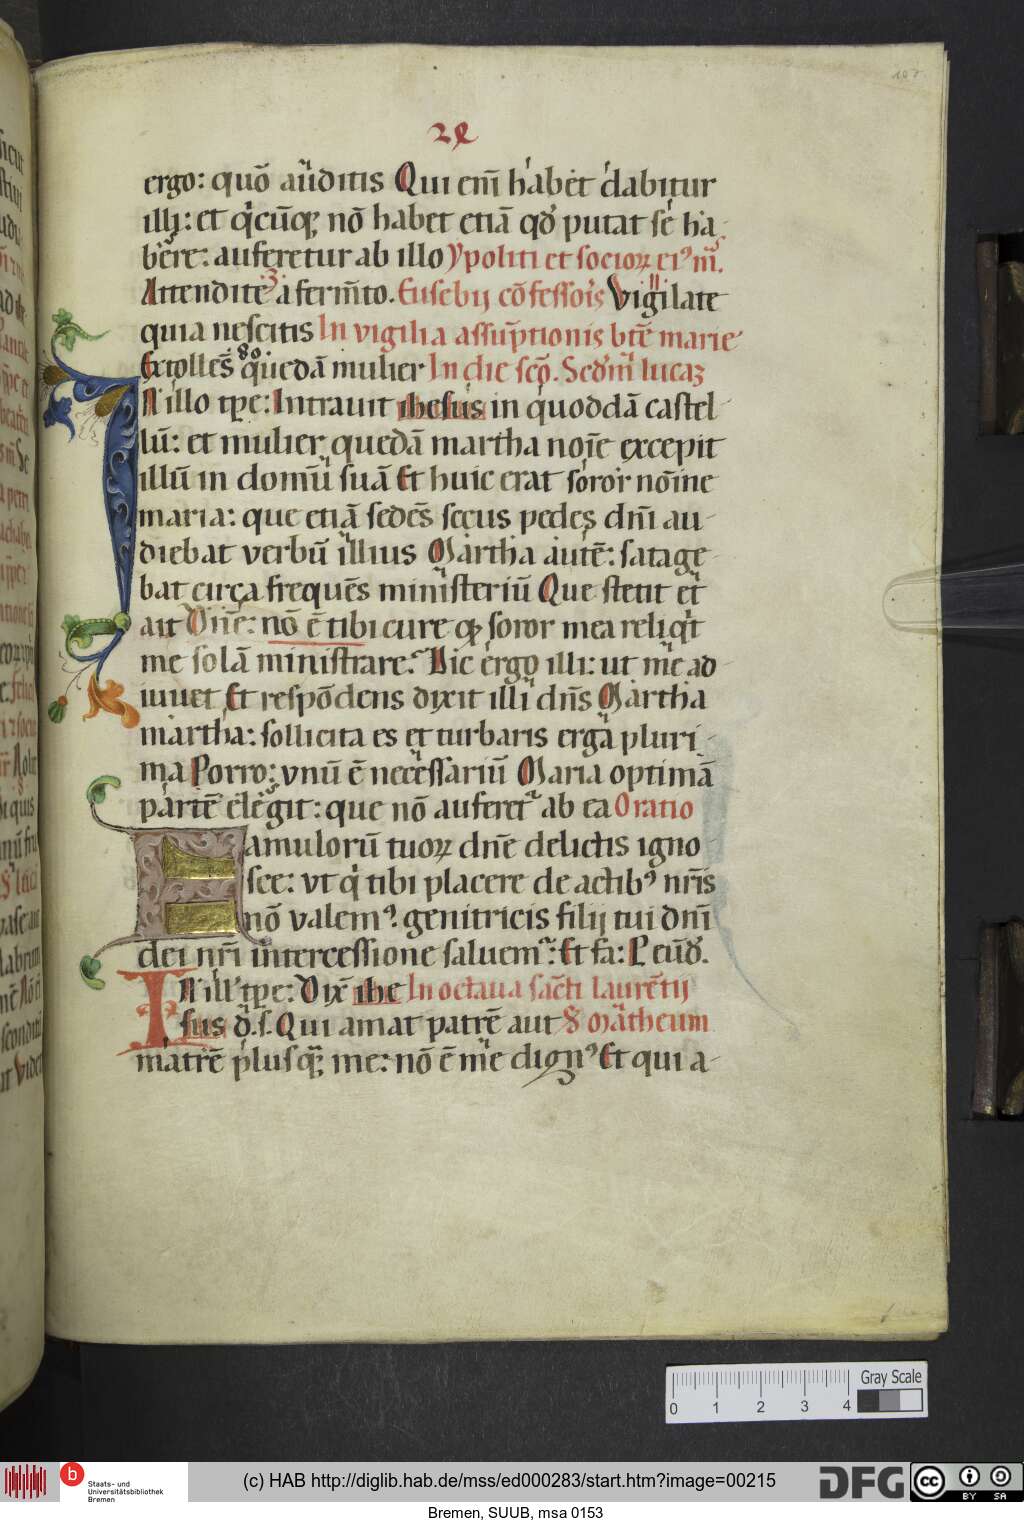 107
ergo: quō aūditis Qui eni̅ habet dabitur
illi: et qicūqꝫ nō habet etiā qd̕ putat se ha
bere: auferetur ab illo Ypoliti et socioꝝ eiꝰ m̄.
Attendite a fermto. Eusebij cōfessoris Vigilate
quia nescitis In vigilia assūptionis bte̅ marie
Extolles̄ quedā mulier In die scō. Sed̕m lucaꝫ
IN illo tpe: Intrauit ihesus in quoddā castel
lū: et mulier quedā martha noīe excepit
illū in domū suā Et huic erat soror nōine
maria: que etiā sedēs secus pedes dn̄i au-
diebat verbū illius Martha autē: satage-
bat circa frequēs ministeriū Que stetit et
ait Dn̄e: nō ē tibi cure qꝫ soror mea reliqit
me solā ministrare? Dic ergo illi: ut me ad-
iuuet Et respōdens dixit illi dn̄s Martha
martha: sollicita es et turbaris erga pluri-
ma Porro: vnū ē necessariū Maria optimā
partē elegit: que nō auferet᷒ ab ea Oratio
Famuloꝝ tuoꝝ dn̄e delictis igno
sce: vt qi tibi placere de actibꝰ nr̄is
nō valemꝰ. genitricis filij tui dn̄i
dei nr̄i intercessione saluem᷒: Et fa: P eūd̕.
IN ill̕ tpe: Dix̄ ihe In octaua sācti laurētij
sus d. s. Qui amat patrē aut S Matheum
matrē plusqꝫ me: nō ē me dignꝰ Et qui a-
0 1 2 3 4
Gray Scale
b
Staats- und
Universitätsbibliothek
Bremen
(c) HAB http://diglib.hab.de/mss/ed000283/start.htm?image=00215
DFG
cc
BY SA
Bremen, SUUB, msa 0153